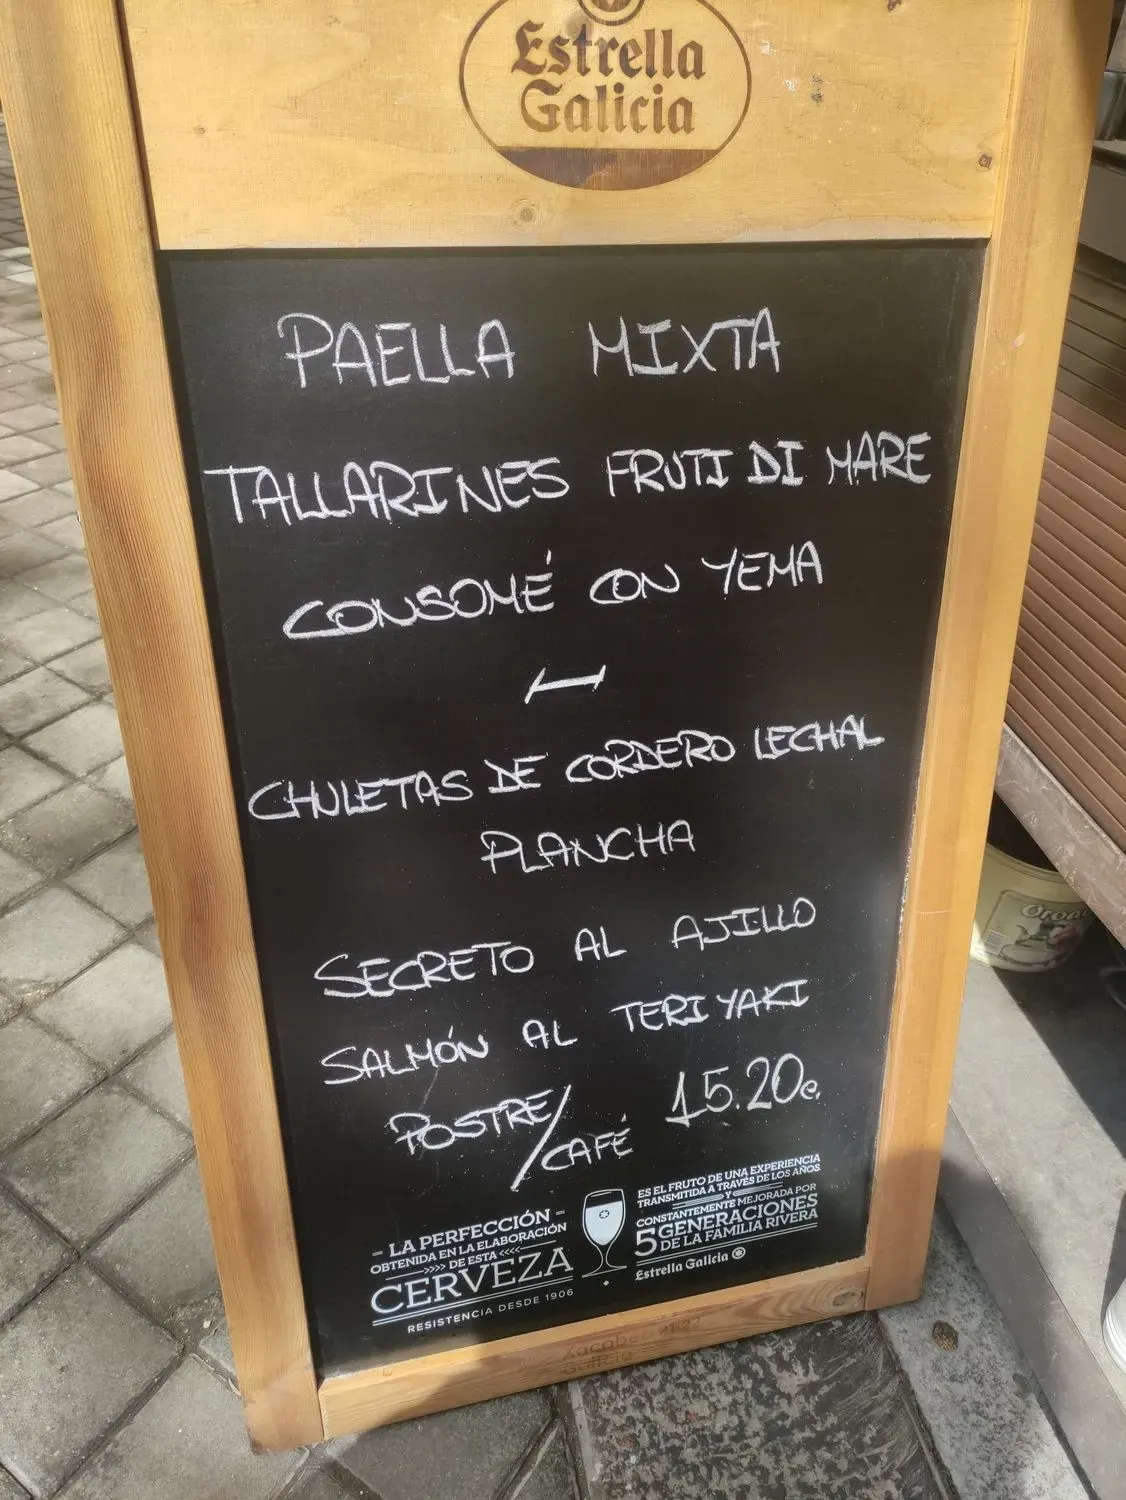 Estrella
Galicia
PAELLA MIXTA
TALLARINES FRUTI DI MARE
CONSOMÉ CON YEMA
CHULETAS DE CORDERO LECHAL
PLANCHA
SECRETO AL AJILLO
SALMÓN AL TERIYAKI
POSTRE/CAFÉ 15.20e.
– LA PERFECCIÓN –
OBTENIDA EN LA ELABORACIÓN
>>>> DE ESTA <<<<
CERVEZA
RESISTENCIA DESDE 1906
ES EL FRUTO DE UNA EXPERIENCIA
TRANSMITIDA A TRAVÉS DE LOS AÑOS
Y
CONSTANTEMENTE MEJORADA POR
5 GENERACIONES
DE LA FAMILIA RIVERA
Estrella Galicia
Xacobeo 21·22
Galicia